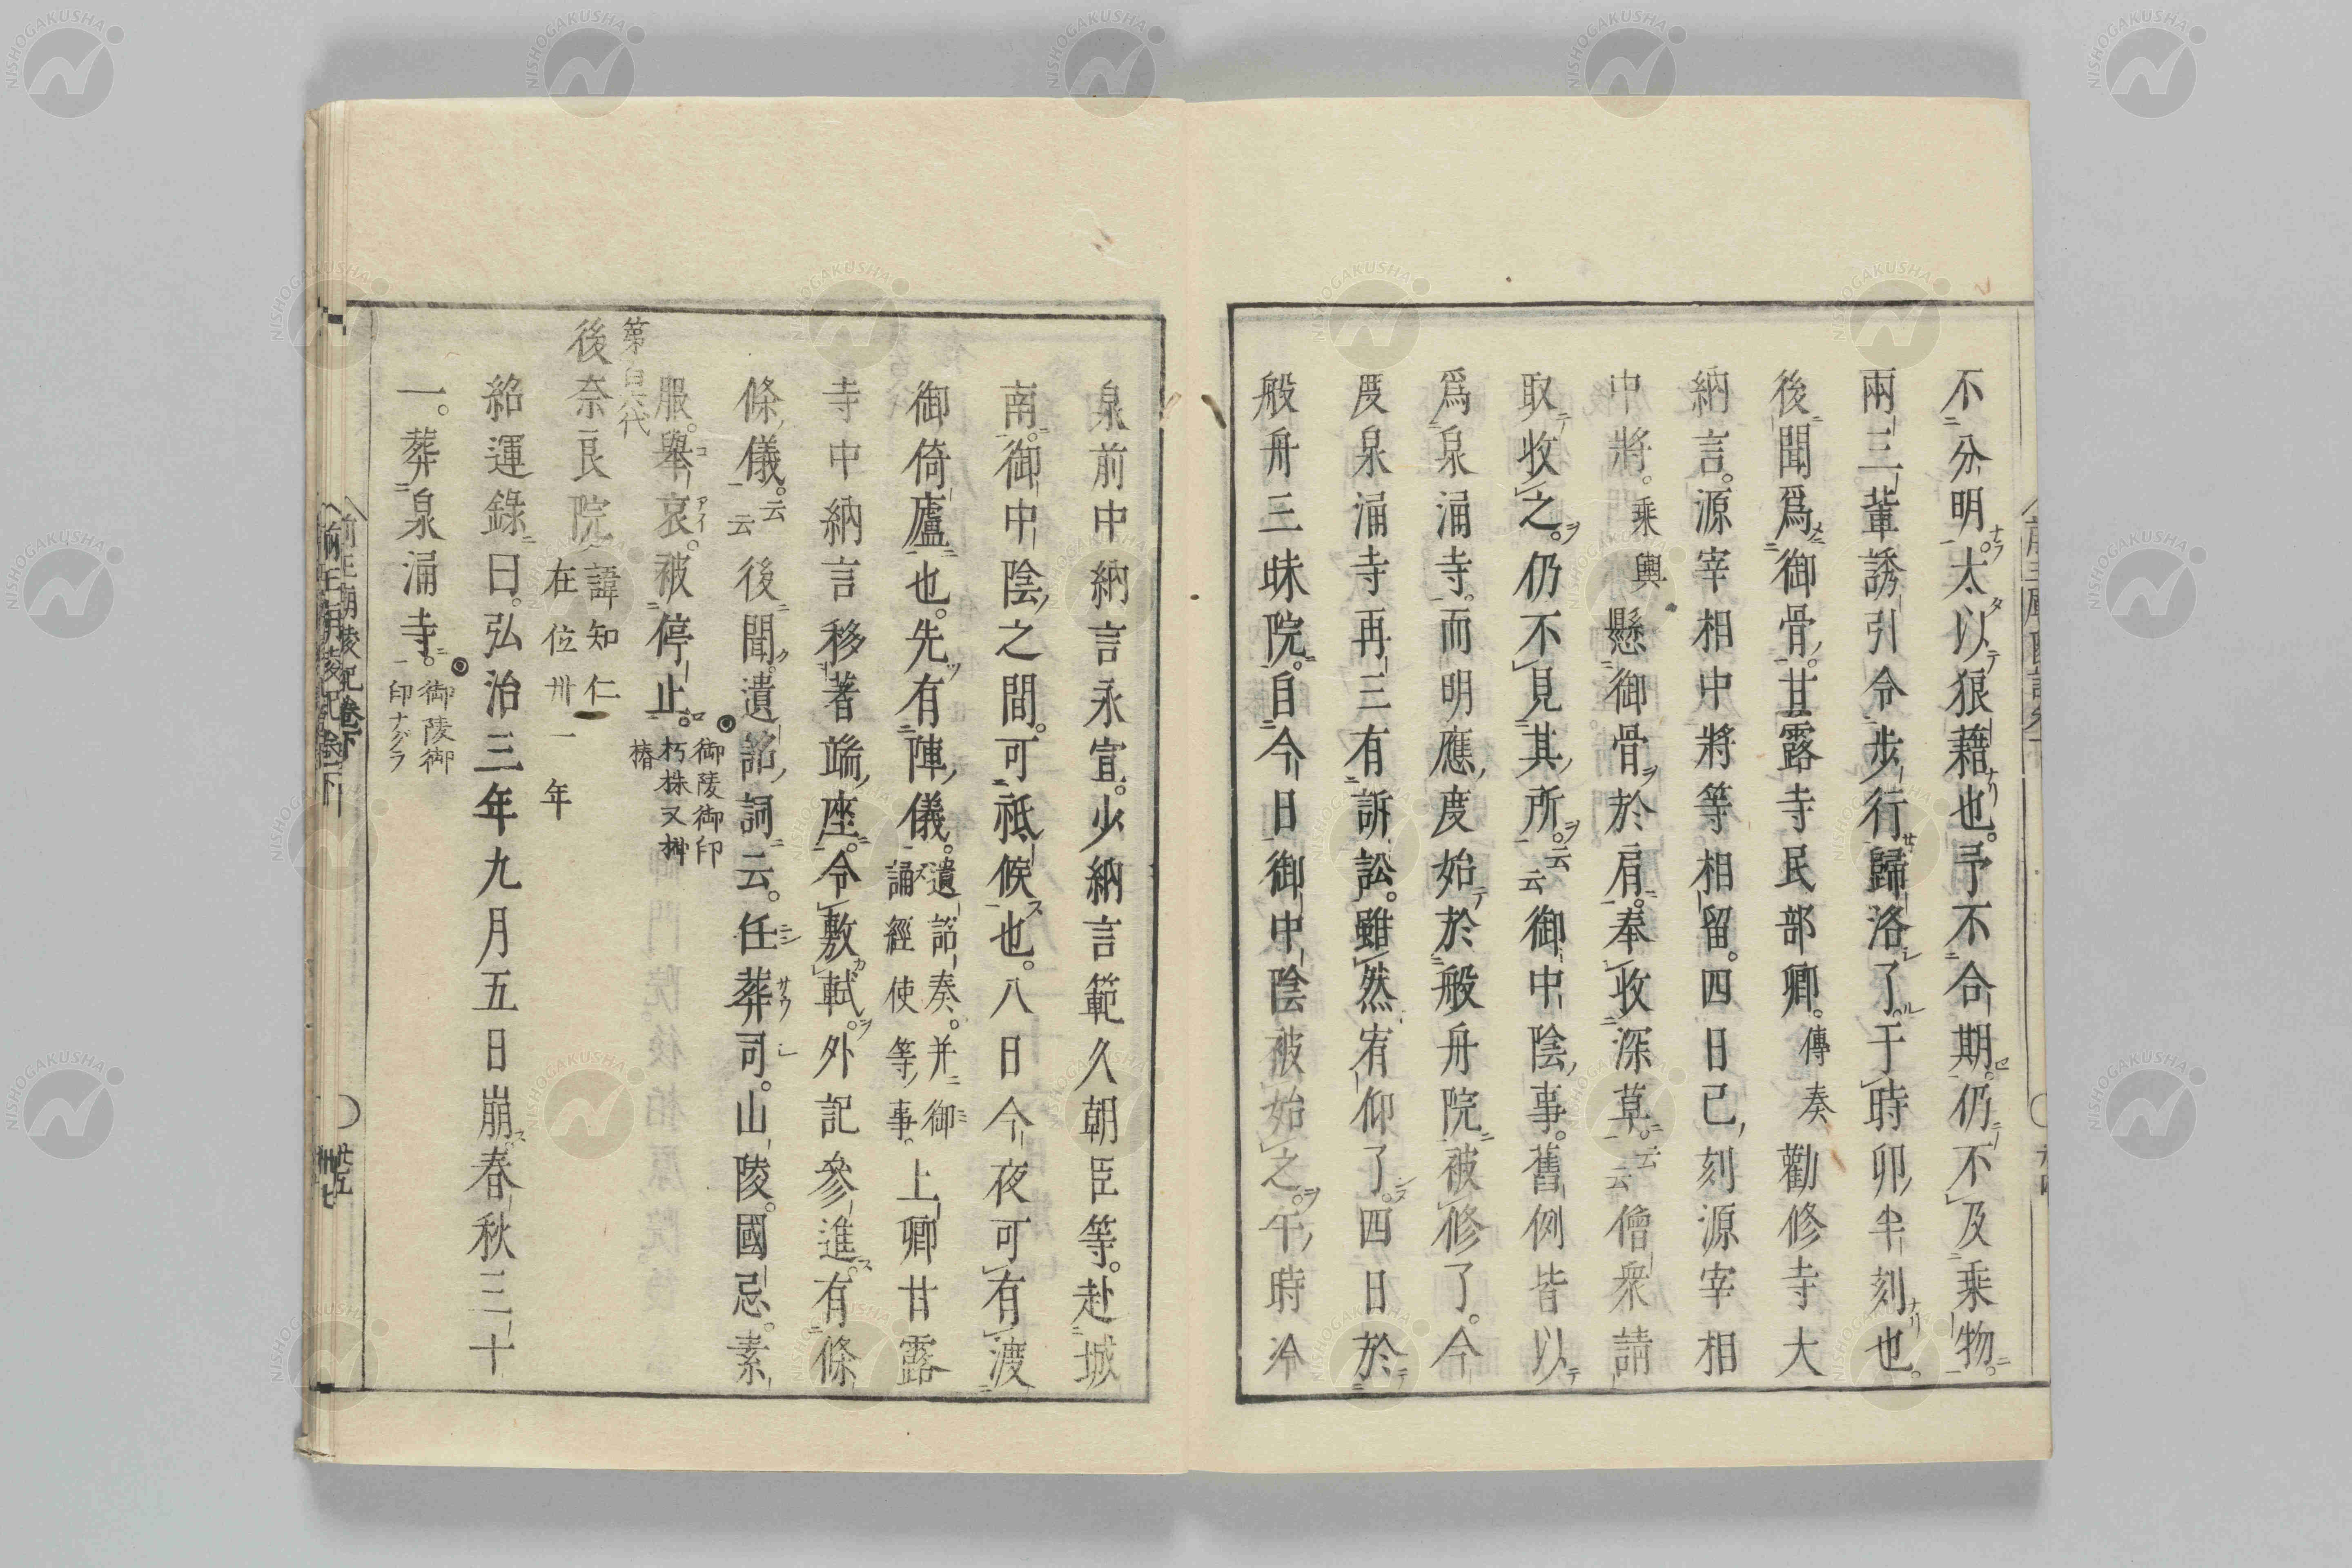 不分明。太以狼藉也。予不合期。仍不及乗物。
兩三輩誘引令歩行歸洛了。于時卯半刻也。
後聞爲御骨。甘露寺民部卿。傳奏勸修寺大
納言。源宰相中將等相留。四日已刻源宰相
中將。乘輿懸御骨ヲ於肩。奉收深草。云云僧衆請
取テ收之ヲ。仍不見其所ヲ。云云御中陰事。舊例皆以テ
爲泉涌寺。而明應度始テ於般舟院被修了。今
度泉涌寺再三有訴訟。雖然宥仰了。四日於テ
般舟三昧院。自今日御中陰被始之ヲ。午時冷
泉前中納言永宣。少納言範久朝臣等。赴城
南。御中陰之間。可祗候也。八日今夜可有渡
御倚廬也。先有陣儀。遺詔奏。并御誦經使等事。上卿甘露
寺中納言移著端座。令敷軾ヲ。外記參進。有條
條儀。云云後聞。遺詔詞云。任葬司。山陵。國忌。素
服。擧哀。被停止。御陵御印朽株又榊椿
第百六代
後奈良院諱知仁在位卅一年
紹運錄曰。弘治三年九月五日崩。春秋三十
一。葬泉涌寺。御陵御印ナグラ
前王廟陵記卷下
廿五